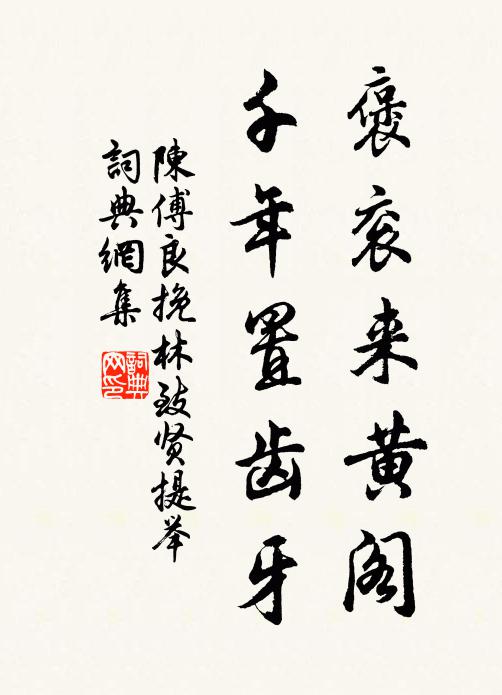 褒衮来黄阁
千年置齿牙
陳傅良挽林致贤提举
詞典網集
詞典网印